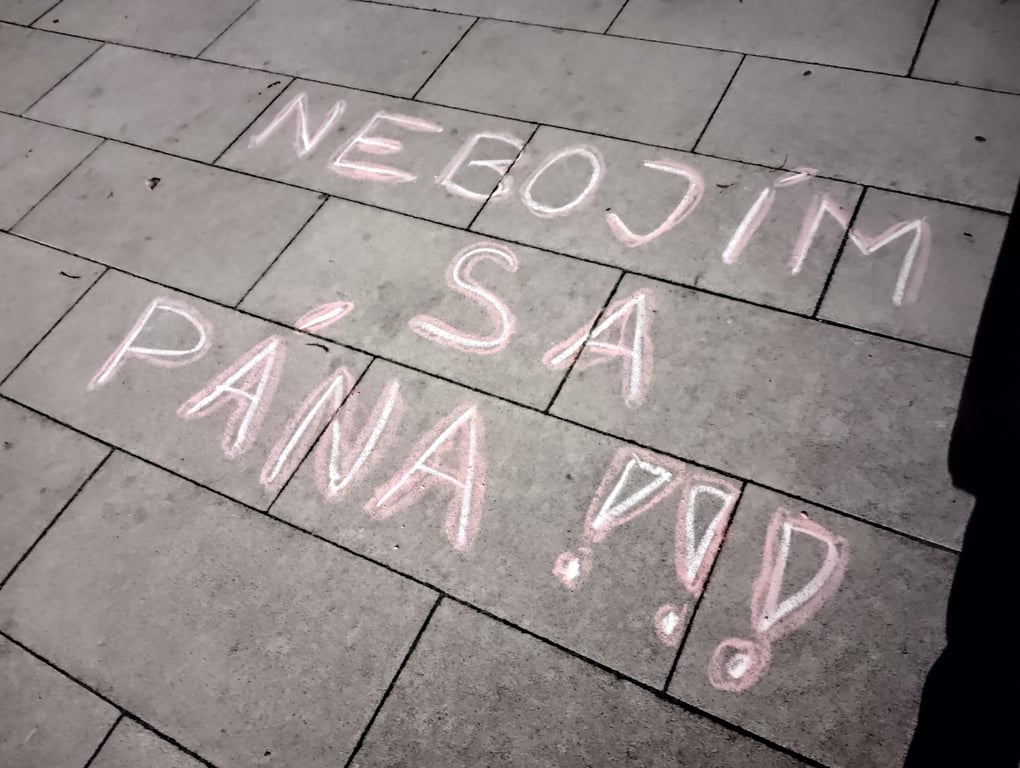 NEBOJÍM
SA
PÁNA !!!